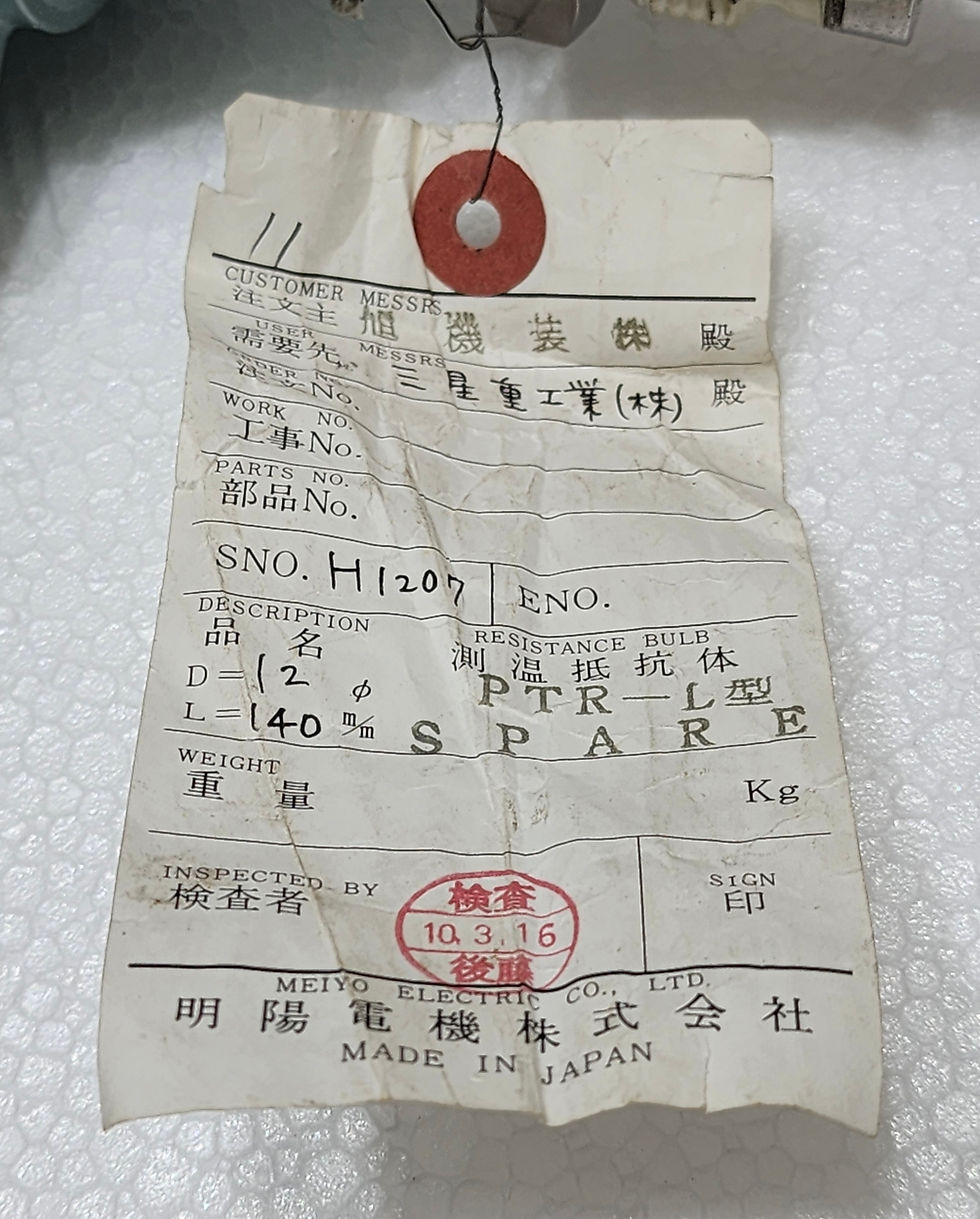 11
CUSTOMER MESSRS
注文主 旭 機 装 ㈱ 殿
USER MESSRS
需要先 三星重工業(株) 殿
ORDER No.
注文No.
WORK NO.
工事No.
PARTS NO.
部品No.
SNO. H1207 ENO.
DESCRIPTION
品 名
RESISTANCE BULB
測 温 抵 抗 体
D=12 φ
PTR—L型
L=140 m/m
SPARE
WEIGHT
重 量 Kg
INSPECTED BY
検査者
検査
10.3.16
後藤
SIGN
印
MEIYO ELECTRIC CO., LTD.
明陽電機株式会社
MADE IN JAPAN